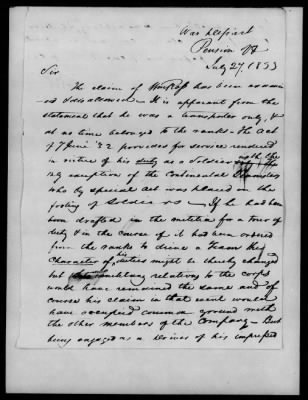 War Depart
Pension Of
July 27. 1833
Sir
The claim of has been exami-
ned & disallowed – It is apparent from the
statement that he was a teamster only, &
at no time belonged to the ranks – The Act
of 7 June '32 provides for service rendered
in virtue of his duty as a Soldier
exception of the Continental Teamsters
who by special Act was placed on the
footing of Soldiers – If he had
been drafted in the militia for a tour of
duty & in the course of it had been ordered
from the ranks to drive a team the
Character of his duties might be thereby changed
but his relating to the corps
would have remained the same and of
course his claim in that event would
have occupied common ground with
the other members of the Company – But
being engaged as a driver of his impressed